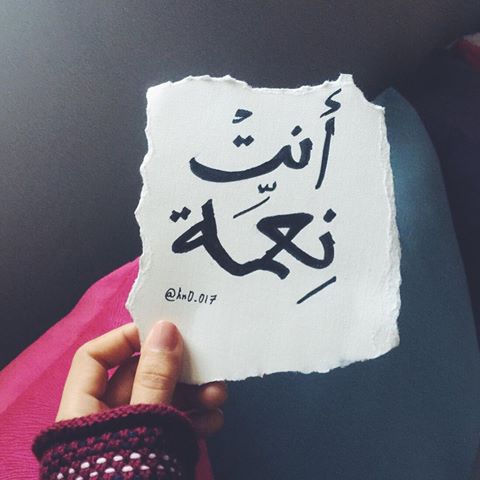 أنتْ
نِعمَّة
@hnD_017